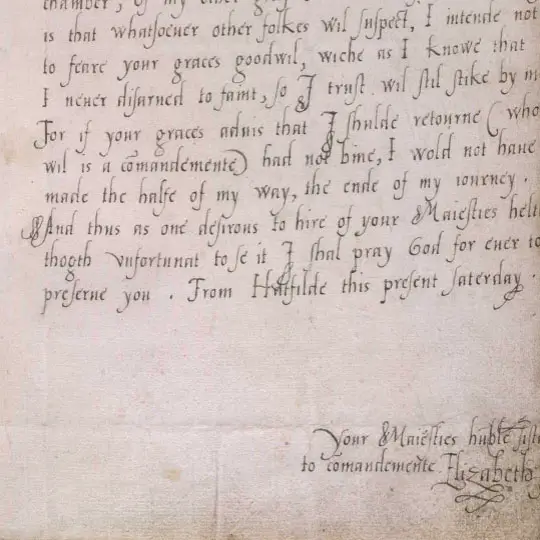 chamber, of my other
is that whatsoeuer other folkes wil suspect, I intende not
to feare your graces goodwil, wiche as I knowe that
I neuer disarued to faint, so I trust wil stil stike by m
For if your graces aduis that I shulde retourne (who
wil is a cōmandemente) had not bine, I wold not haue
made the halfe of my way, the ende of my iourney.
And thus as one desirous to hire of your Maiesties helt
thogth vnfortunat to se it I shal pray God for euer to
preserue you. From Hatfilde this present saterday.
Your Maiesties hūble sist
to cōmandemente. Elizabeth